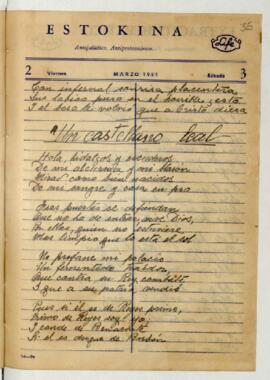 36
ESTOKINA
Life
2 Viernes MARZO 1951 Sábado 3
Con infernal sonrisa placentera
Sus labios puso en el
I el beso
a Cristo diera
Un castellano leal
Hola, hidalgos y escuderos
De mi alcurnia y mi blasón
Mirad como bien nacidos
De mi sangre y casa en pro
Esas puertas se defiendan
Que no ha de entrar, vive Dios,
Por ellas, quien no estuviere
Mas limpio que lo está el sol
No profane mi palacio
Un fementido traidor
Que contra su Rey combate
I que a su patria vendió
Pues si él es de Reyes primo,
Primo de Reyes soy yo;
I conde de Benavente
Si él es duque de Borbón